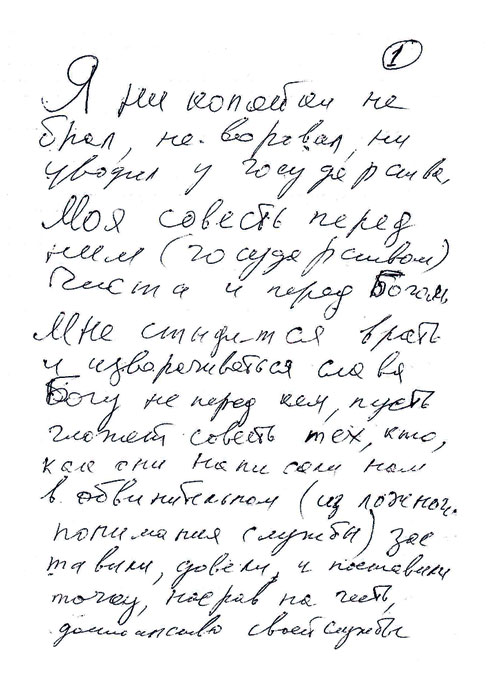 1
Я ни копейки не
брал, не воровал, ни
уводил у государства,
Моя совесть перед
ним (государством)
Чиста и перед Богом
Мне стыдится врать
и изворачиваться слава
Богу не перед кем, пусть
гложет совесть тех, кто,
как они написали нам
в обвинительном (из ложног.
понимания службы) зас
тавили, довели, и поставили
точку, насрав на честь,
достоинство своей службы